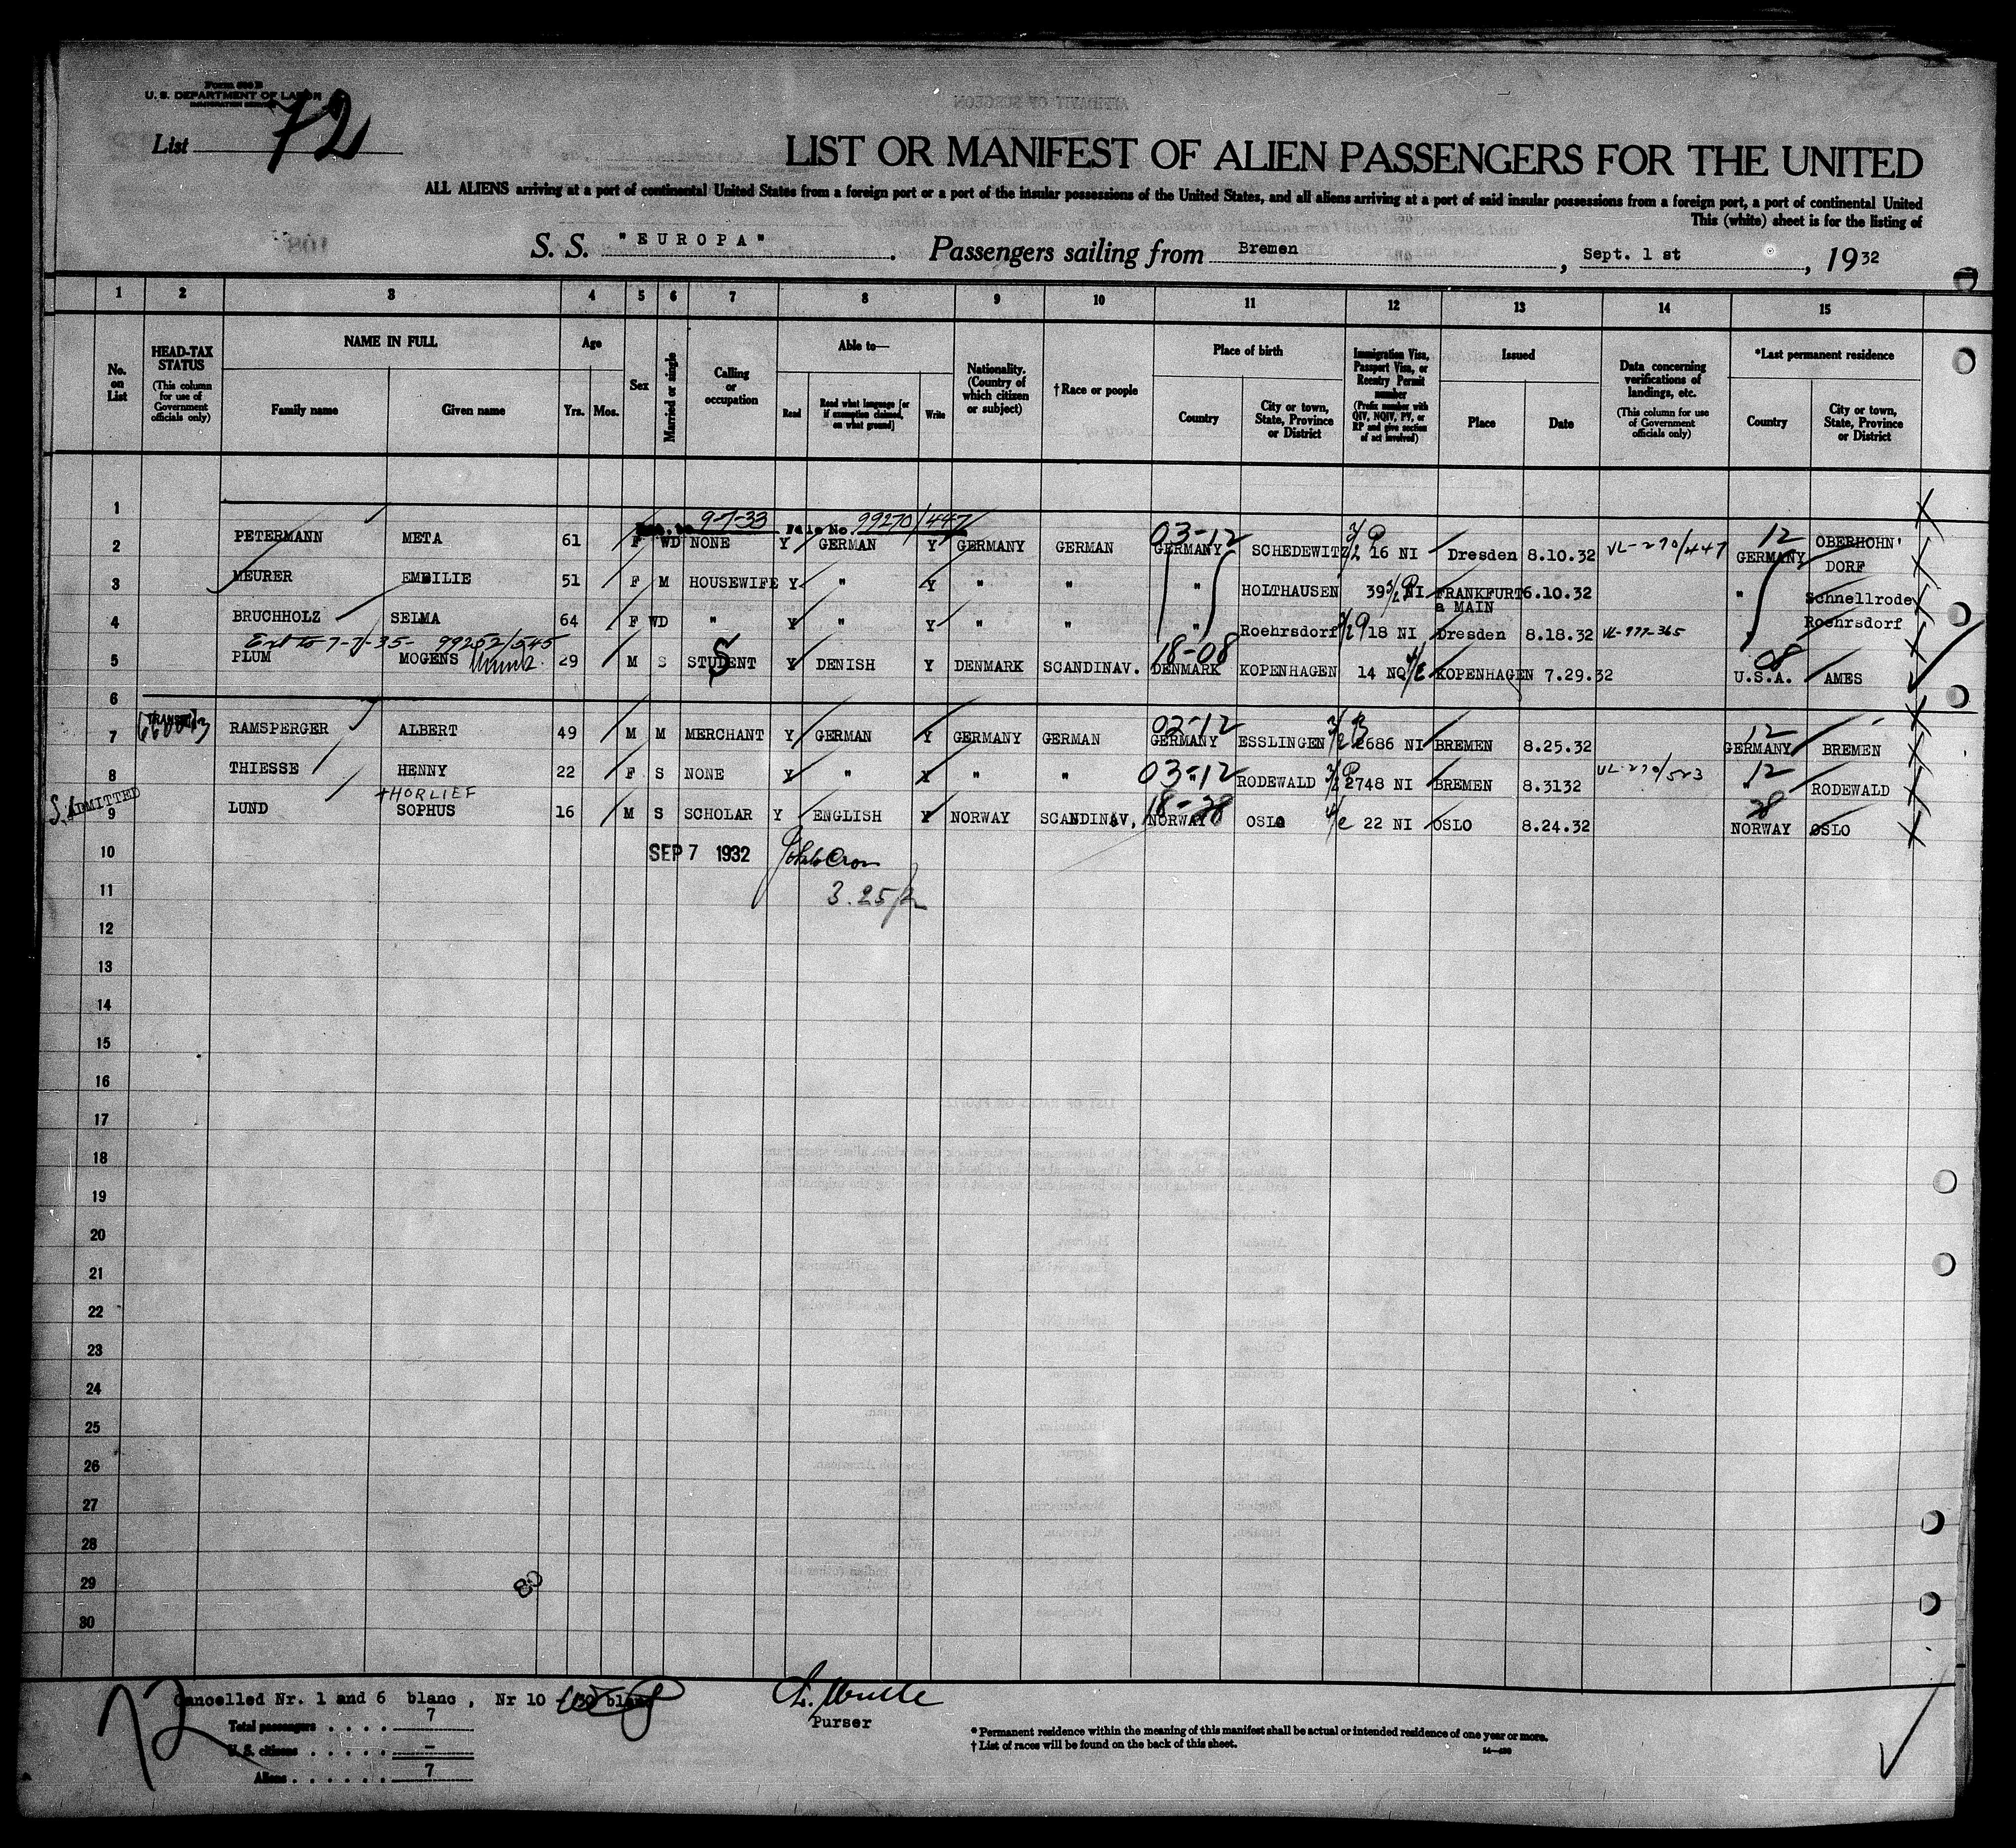 Form 500 B
U. S. DEPARTMENT OF LABOR
IMMIGRATION SERVICE
List 72
LIST OR MANIFEST OF ALIEN PASSENGERS FOR THE UNITED
ALL ALIENS arriving at a port of continental United States from a foreign port or a port of the insular possessions of the United States, and all aliens arriving at a port of said insular possessions from a foreign port, a port of continental United
This (white) sheet is for the listing of
S. S. "EUROPA". Passengers sailing from Bremen, Sept. 1 st, 1932
1 2 3 4 5 6 7 8 9 10 11 12 13 14 15
No. on List
HEAD-TAX STATUS (This column for use of Government officials only)
NAME IN FULL
Family name Given name
Age
Yrs. Mos.
Sex
Married or single
Calling or occupation
Able to—
Read Read what language [or if exemption claimed, on what ground] Write
Nationality. (Country of which citizen or subject)
† Race or people
Place of birth
Country City or town, State, Province or District
Immigration Visa, Passport Visa, or Reentry Permit number (Prefix number with QIV, NQIV, PV, or RP and give section of act involved)
Issued
Place Date
Data concerning verifications of landings, etc. (This column for use of Government officials only)
*Last permanent residence
Country City or town, State, Province or District
1
9-7-33 File No. 99270/447
2 PETERMANN META 61 F WD NONE Y GERMAN Y GERMANY GERMAN 03-12 GERMANY SCHEDEWITZ 16 NI Dresden 8.10.32 VL-270/447 12 GERMANY OBERHOHN' DORF
3 MEURER EMILIE 51 F M HOUSEWIFE Y " Y " " " HOLTHAUSEN 39 NI FRANKFURT a MAIN 6.10.32 " Schnellrode
4 BRUCHHOLZ SELMA 64 F WD " Y " Y " " " Roehrsdorf 18 NI Dresden 8.18.32 VL-777-365 " Roehrsdorf
Ext to 7-7-35- 99252/545
5 PLUM MOGENS 29 M S STUDENT Y DENISH Y DENMARK SCANDINAV. 18-08 DENMARK KOPENHAGEN 14 NQ KOPENHAGEN 7.29.32 08 U.S.A. AMES
6
7 TRANSIT RAMSPERGER ALBERT 49 M M MERCHANT Y GERMAN Y GERMANY GERMAN 03-12 GERMANY ESSLINGEN 2686 NI BREMEN 8.25.32 12 GERMANY BREMEN
8 THIESSE HENNY 22 F S NONE Y " Y " " 03-12 " RODEWALD 2748 NI BREMEN 8.3132 VL-270/523 12 " RODEWALD
9 ADMITTED LUND THORLIEF SOPHUS 16 M S SCHOLAR Y ENGLISH Y NORWAY SCANDINAV. 18-28 NORWAY OSLO 22 NI OSLO 8.24.32 28 NORWAY OSLO
10 SEP 7 1932
11 3.25/
12
13
14
15
16
17
18
19
20
21
22
23
24
25
26
27
28
29
30
80
72
Cancelled Nr. 1 and 6 blanc, Nr 10 - 30 blanc
Total passengers . . . . 7
U. S. citizens . . . . . –
Aliens . . . . . . 7
Purser
* Permanent residence within the meaning of this manifest shall be actual or intended residence of one year or more.
† List of races will be found on the back of this sheet.